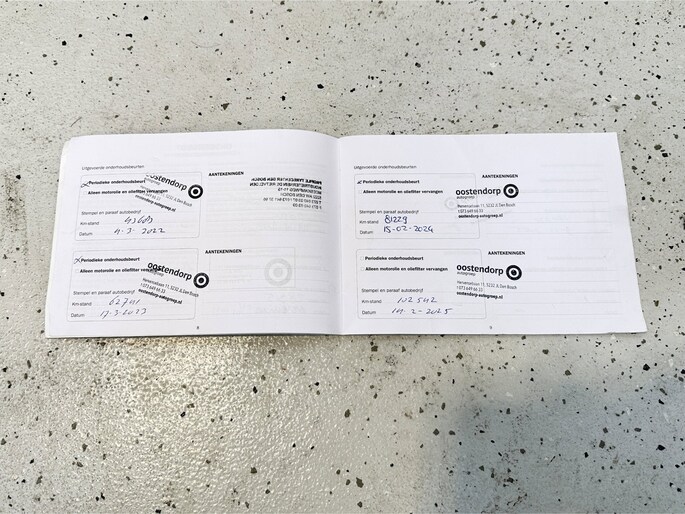 Uitgevoerde onderhoudsbeurten
AANTEKENINGEN
Periodieke onderhoudsbeurt
Alleen motorolie en oliefilter vervangen
oostendorp
autogroep
5232 JL Den Bosch
t 073 649 66 33
oostendorp-autogroep.nl
Stempel en paraaf autobedrijf
Km-stand
Datum 4-3-2022
AANTEKENINGEN
Periodieke onderhoudsbeurt
Alleen motorolie en oliefilter vervangen
oostendorp
autogroep
Hervensebaan 11, 5232 JL Den Bosch
t 073 649 66 33
oostendorp-autogroep.nl
Stempel en paraaf autobedrijf
Km-stand 62741
Datum 17-3-2023
8
Uitgevoerde onderhoudsbeurten
AANTEKENINGEN
Periodieke onderhoudsbeurt
Alleen motorolie en oliefilter vervangen
oostendorp
autogroep
Hervensebaan 11, 5232 JL Den Bosch
t 073 649 66 33
oostendorp-autogroep.nl
Stempel en paraaf autobedrijf
Km-stand 81229
Datum 15-02-2024
AANTEKENINGEN
Periodieke onderhoudsbeurt
Alleen motorolie en oliefilter vervangen
oostendorp
autogroep
Hervensebaan 11, 5232 JL Den Bosch
t 073 649 66 33
oostendorp-autogroep.nl
Stempel en paraaf autobedrijf
Km-stand 102542
Datum 14-2-2025